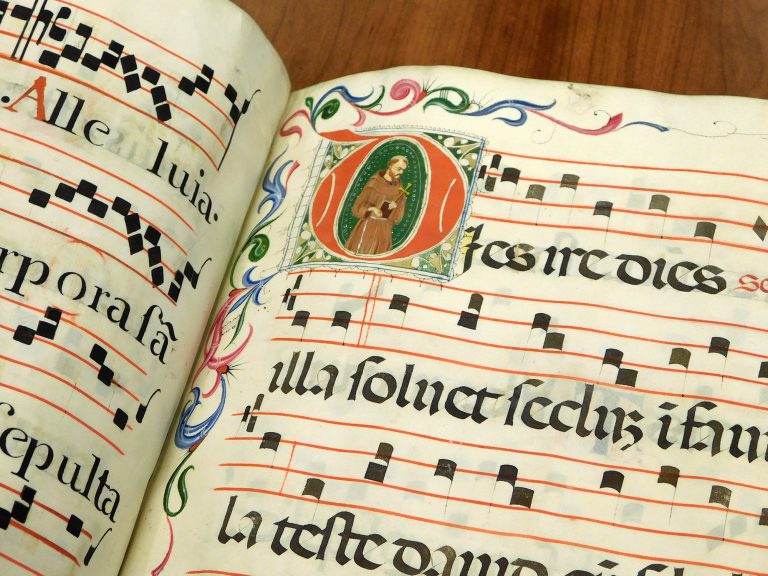 Alle luia.
rpora ſã
ſepulta
Dies ire dies
illa ſoluet ſecluꝫ i faui
la teſte dauid